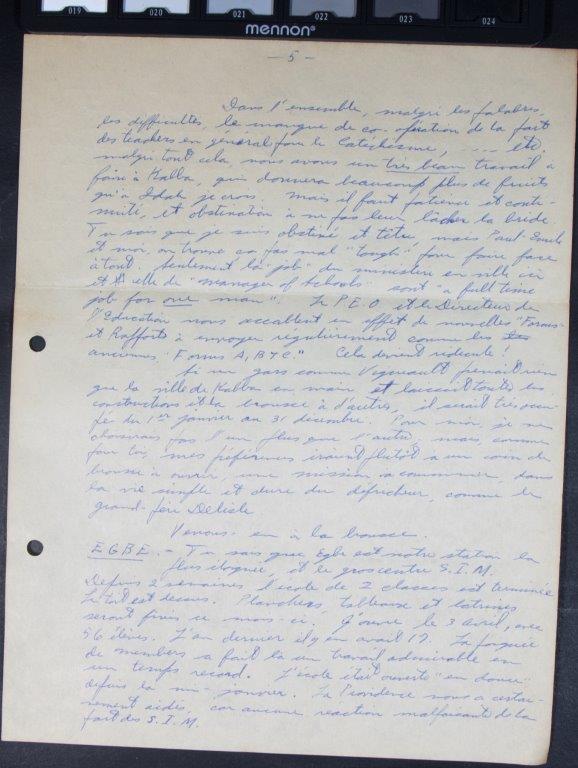 019 020 021 022 023 024
mennon®
— 5 —
Dans l'ensemble, malgré les palabres,
les difficultés, le manque de co-opération de la part
des teachers en général pour le Catéchisme, .... etc.
malgré tout cela, nous avons un très beau travail à
faire à Kabba, qui donnera beaucoup plus de fruits
qu'à Idah je crois. Mais il faut patience et conti-
nuité, et obstination à ne pas leur lâcher la bride.
Tu sais que je suis obstiné et têtu, mais Paul-Emile
et moi, on trouve ça pas mal "tough" pour faire face
à tout. Seulement la "job" du ministère en ville ici
et celle de "manager of Schools" sont "a full time
job for one man". Le P.E.O. et le Directeur de
l'Education nous accablent en effet de nouvelles "Forms"
et Rapports à envoyer régulièrement comme les
anciennes "Forms A, B & C." Cela devient ridicule!
Si un gars comme Vigeneault prenait rien
que la ville de Kabba en main et laissait toutes les
constructions et la brousse à d'autres, il serait très occu-
pé du 1er janvier au 31 décembre. Pour moi, je ne
choisirais pas l'un plus que l'autre, mais, comme
pour toi, mes préférences iraient plutôt à un coin de
brousse à ouvrir, une mission à commencer, dans
la vie simple et dure du défricheur, comme le
grand-père Delisle.
Venons-en à la brousse.
EGBE. - Tu sais que Egbe est notre station la
plus éloignée, et le gros centre S.I.M.
Depuis 2 semaines l'école de 2 classes est terminée.
Le toit est dessus. Planchers, tableaux et latrines
seront finis ce mois-ci. J'ouvre le 3 avril, avec
56 élèves. L'an dernier il y en avait 17. La poignée
de members a fait là un travail admirable en
un temps record. L'école était ouverte "en donne"
depuis la mi-janvier. La Providence nous a certai-
nement aidés, car aucune réaction malfaisante de la
part des S.I.M.